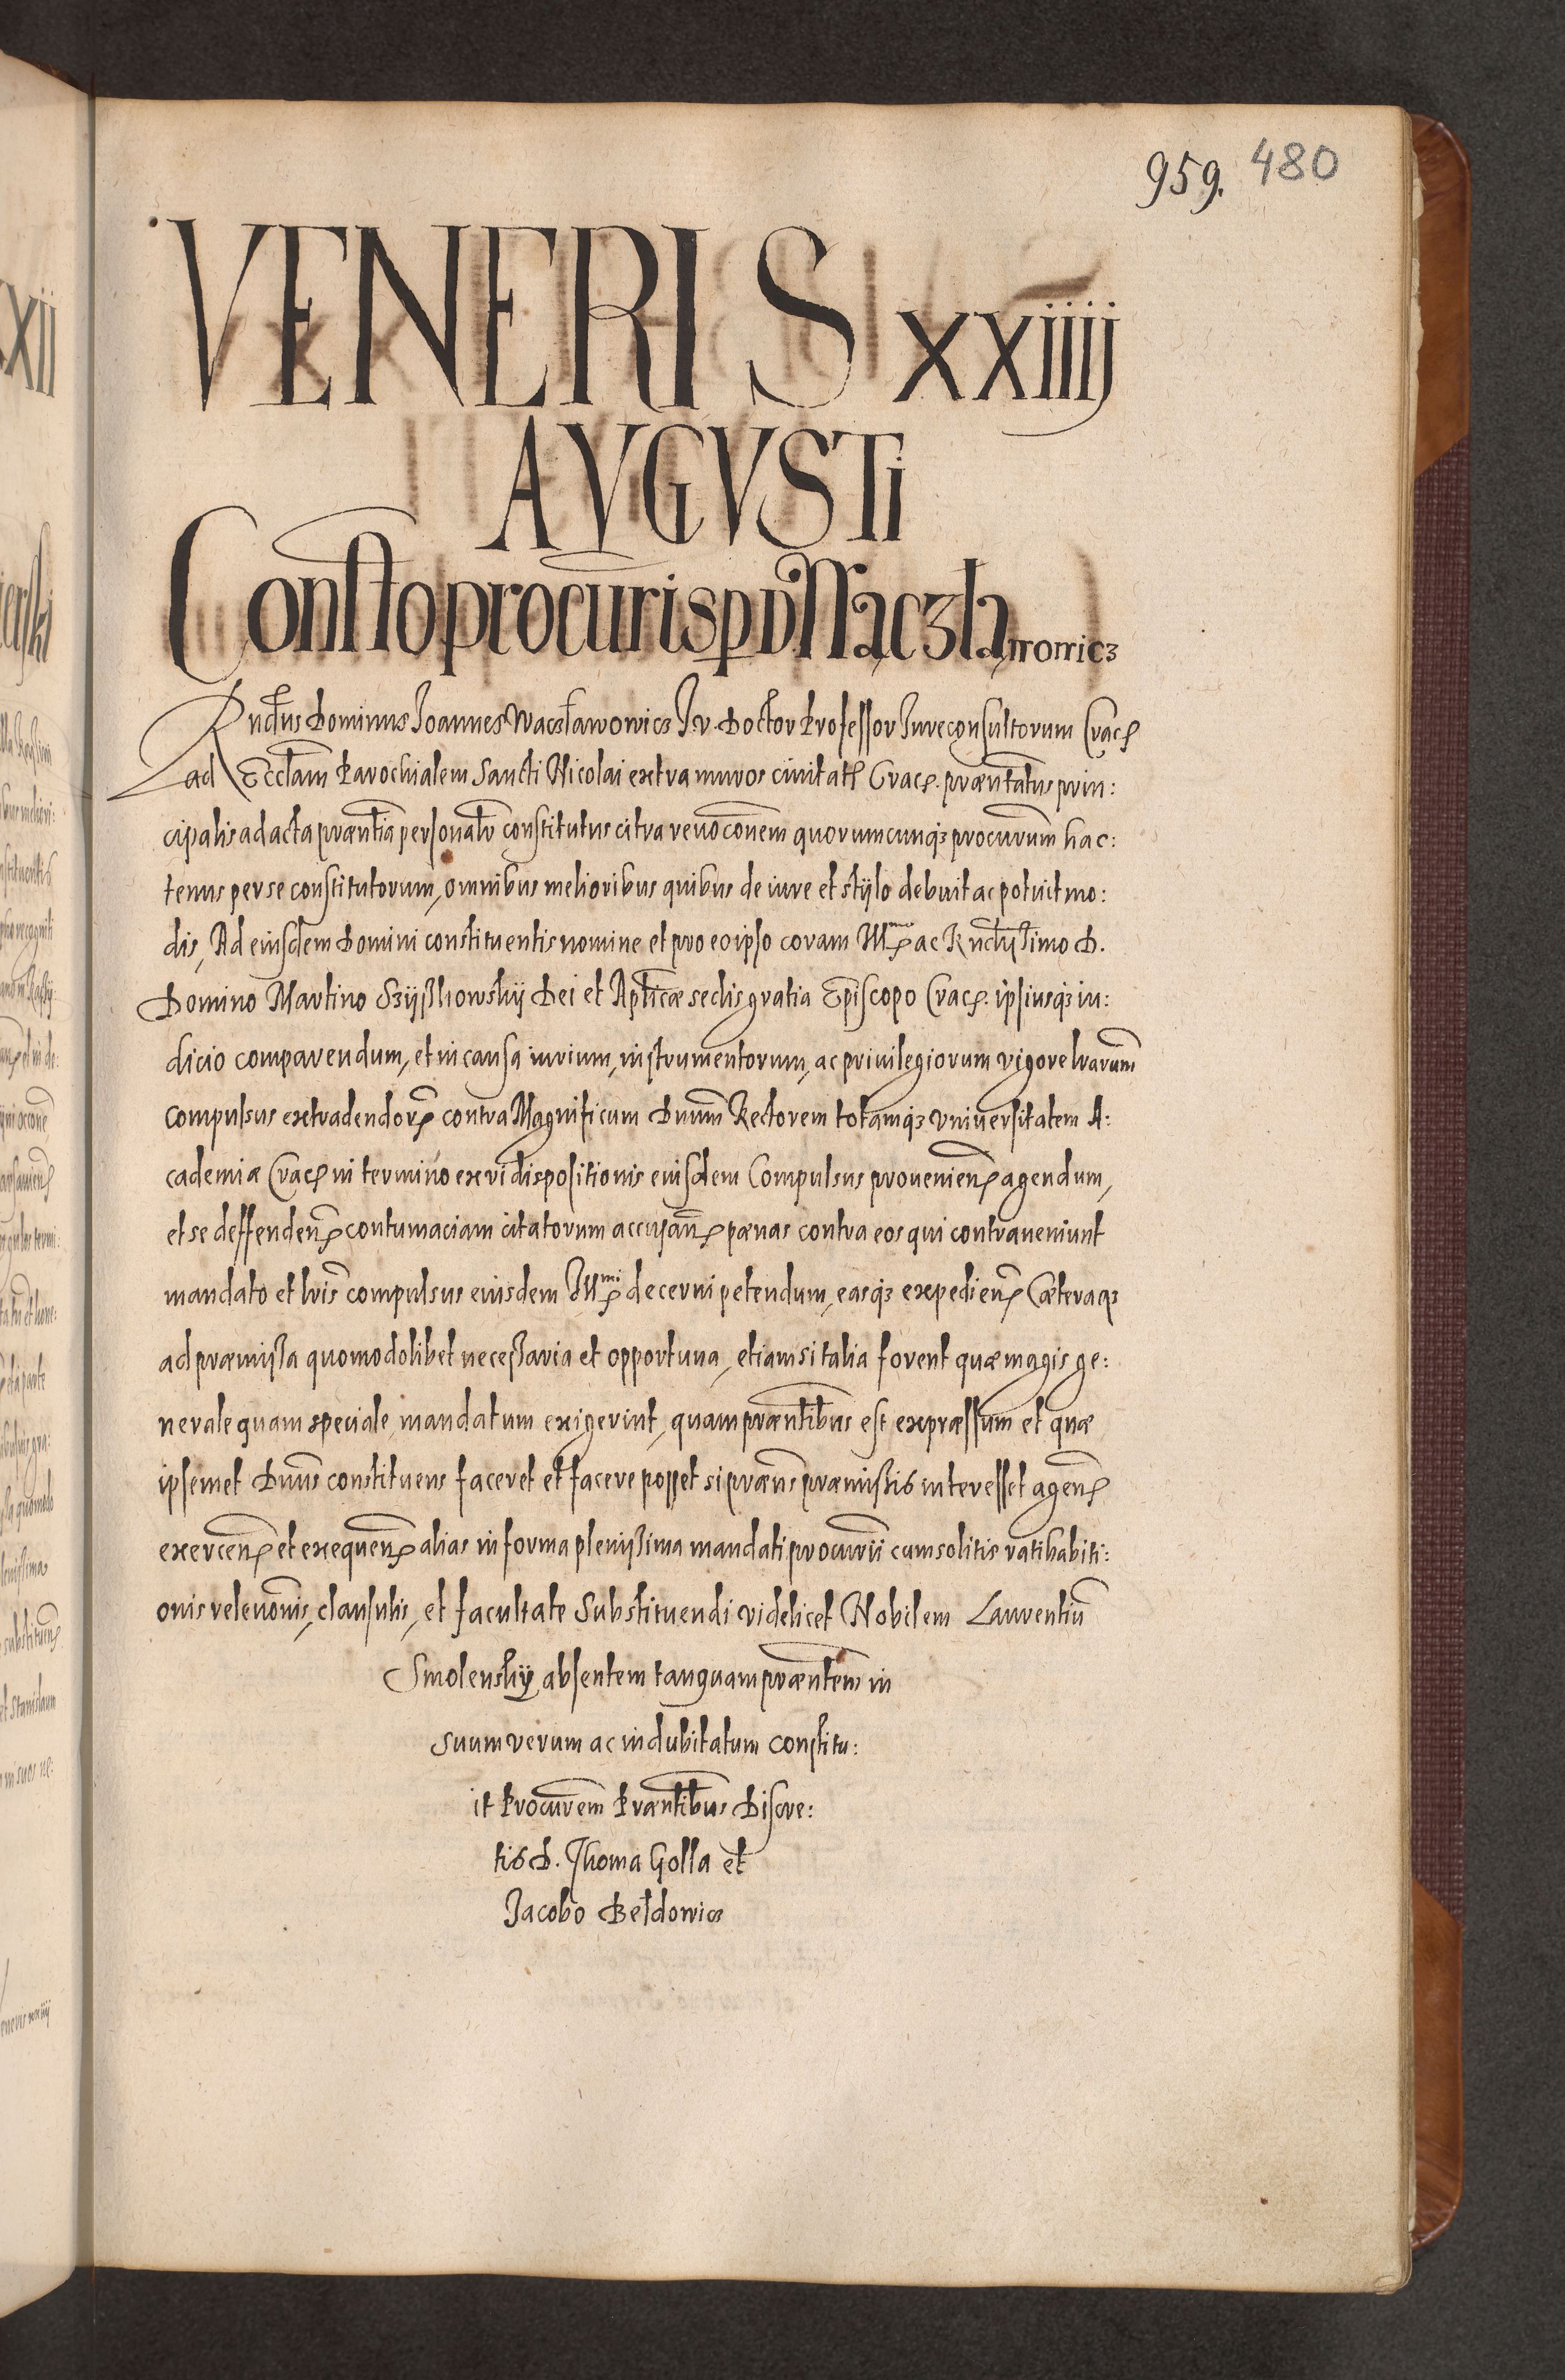 959. 480
VENERIS xxiiij
AVGVSTi
Consto procuris p D Waczla wowicz
Rndus Dominus Joannes Waczlawowicz J. v. Doctor Professor Jureconsultorum Crac.
ad Ecclam Parochialem Sancti Nicolai extra muros ciuitatis Crac. præntatus prin:
cipalis ad acta præntia personalr constitutus citra reuoconem quorumcunq; procurum hac:
tenus per se constitutorum, omnibus melioribus quibus de iure et stÿlo debuit ac potuit mo:
dis, Ad eiusdem Domini constituentis nomine et pro eo ipso coram Illmo ac Rndissimo D.
Domino Martino Szÿszkowskÿ Dei et Aplicæ sedis gratia Episcopo Crac. ipsiusq; iu:
dicio comparendum, et in causa iurium, instrumentorum, ac priuilegiorum vigore lrarum
compulsus extradendor. contra Magnificum Dnum Rectorem totamq; vniuersitatem A:
cademiæ Crac. in termino ex vi dispositionis eiusdem Compulsus prouenien. agendum,
et se deffenden. contumaciam citatorum accusan. pænas contra eos qui contraueniunt
mandato et lris compulsus eiusdem Illmi decerni petendum, easq; expedien. Cæteraq;
ad præmissa quomodolibet necessaria et opportuna, etiamsi talia forent quæ magis ge:
nerale quam speciale mandatum exigerint, quam præntibus est expræssum et quæ
ipsemet Dnus constituens faceret et facere posset si præns præmissis interesset agen.
exercen. et exequen. alias in forma plenissima mandati procurii cum solitis ratihabiti:
onis releuonis, clausulis, et facultate Substituendi videlicet Nobilem Laurentiu
Smolenskÿ absentem tanquam præntem in
suum verum ac indubitatum constitu:
it Procurem Præntibus Discre:
tis D. Thoma Golla et
Jacobo Beldowicz